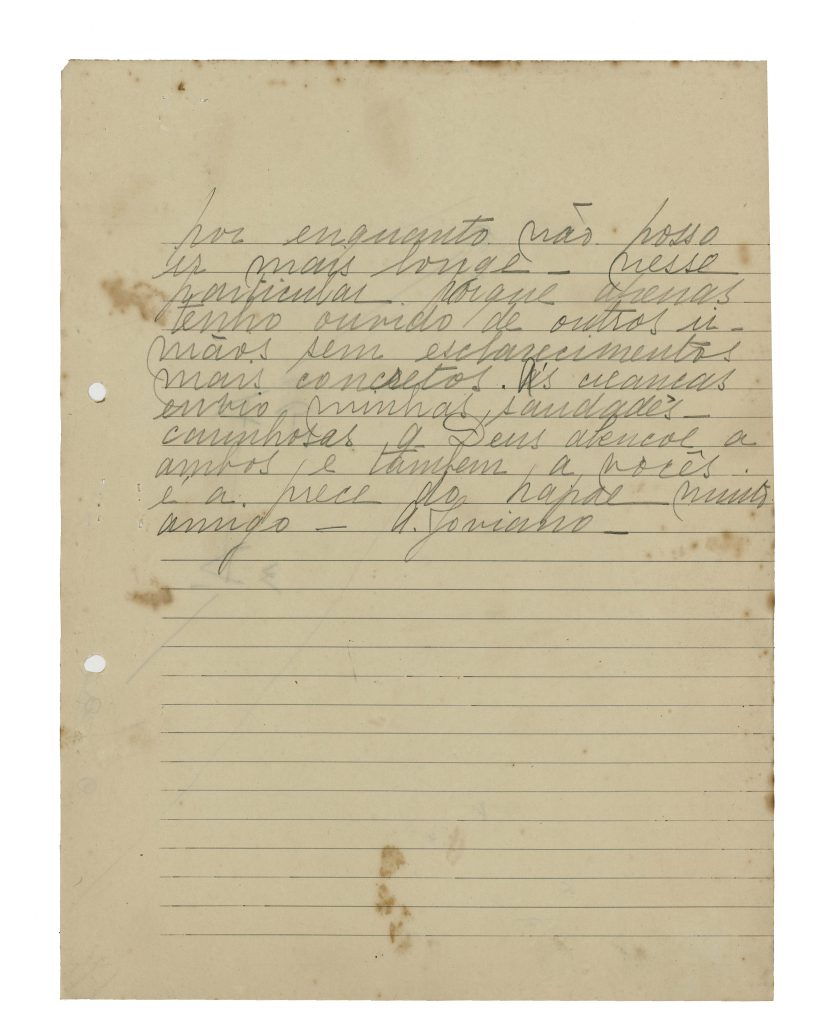 por enquanto não posso
ir mais longe – nesse
particular porque apenas
tenho ouvido de outros ir-
mãos sem esclarecimentos
mais concretos. Às creanças
envio minhas saudades
carinhosas. q Deus abençoe a
ambos e tambem a vocês.
é a prece do papae muito
amigo – A. Joviano –